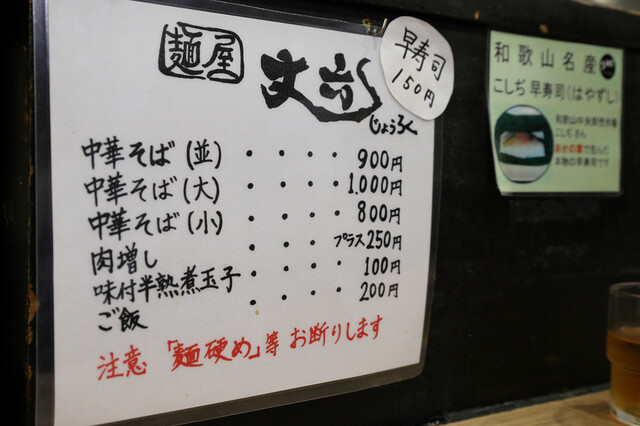 麺屋 丈六
じょうろく
早寿司
150円
中華そば(並)・・・・900円
中華そば(大)・・・・1.000円
中華そば(小)・・・・800円
肉増し・・・・プラス250円
味付半熟煮玉子・・・・100円
ご飯・・・・200円
注意 「麺硬め」等 お断りします
和歌山名産
こしぢ早寿司(はやずし)
和歌山中央卸売市場
こしぢさん
あせの葉で包んだ
本物の早寿司です